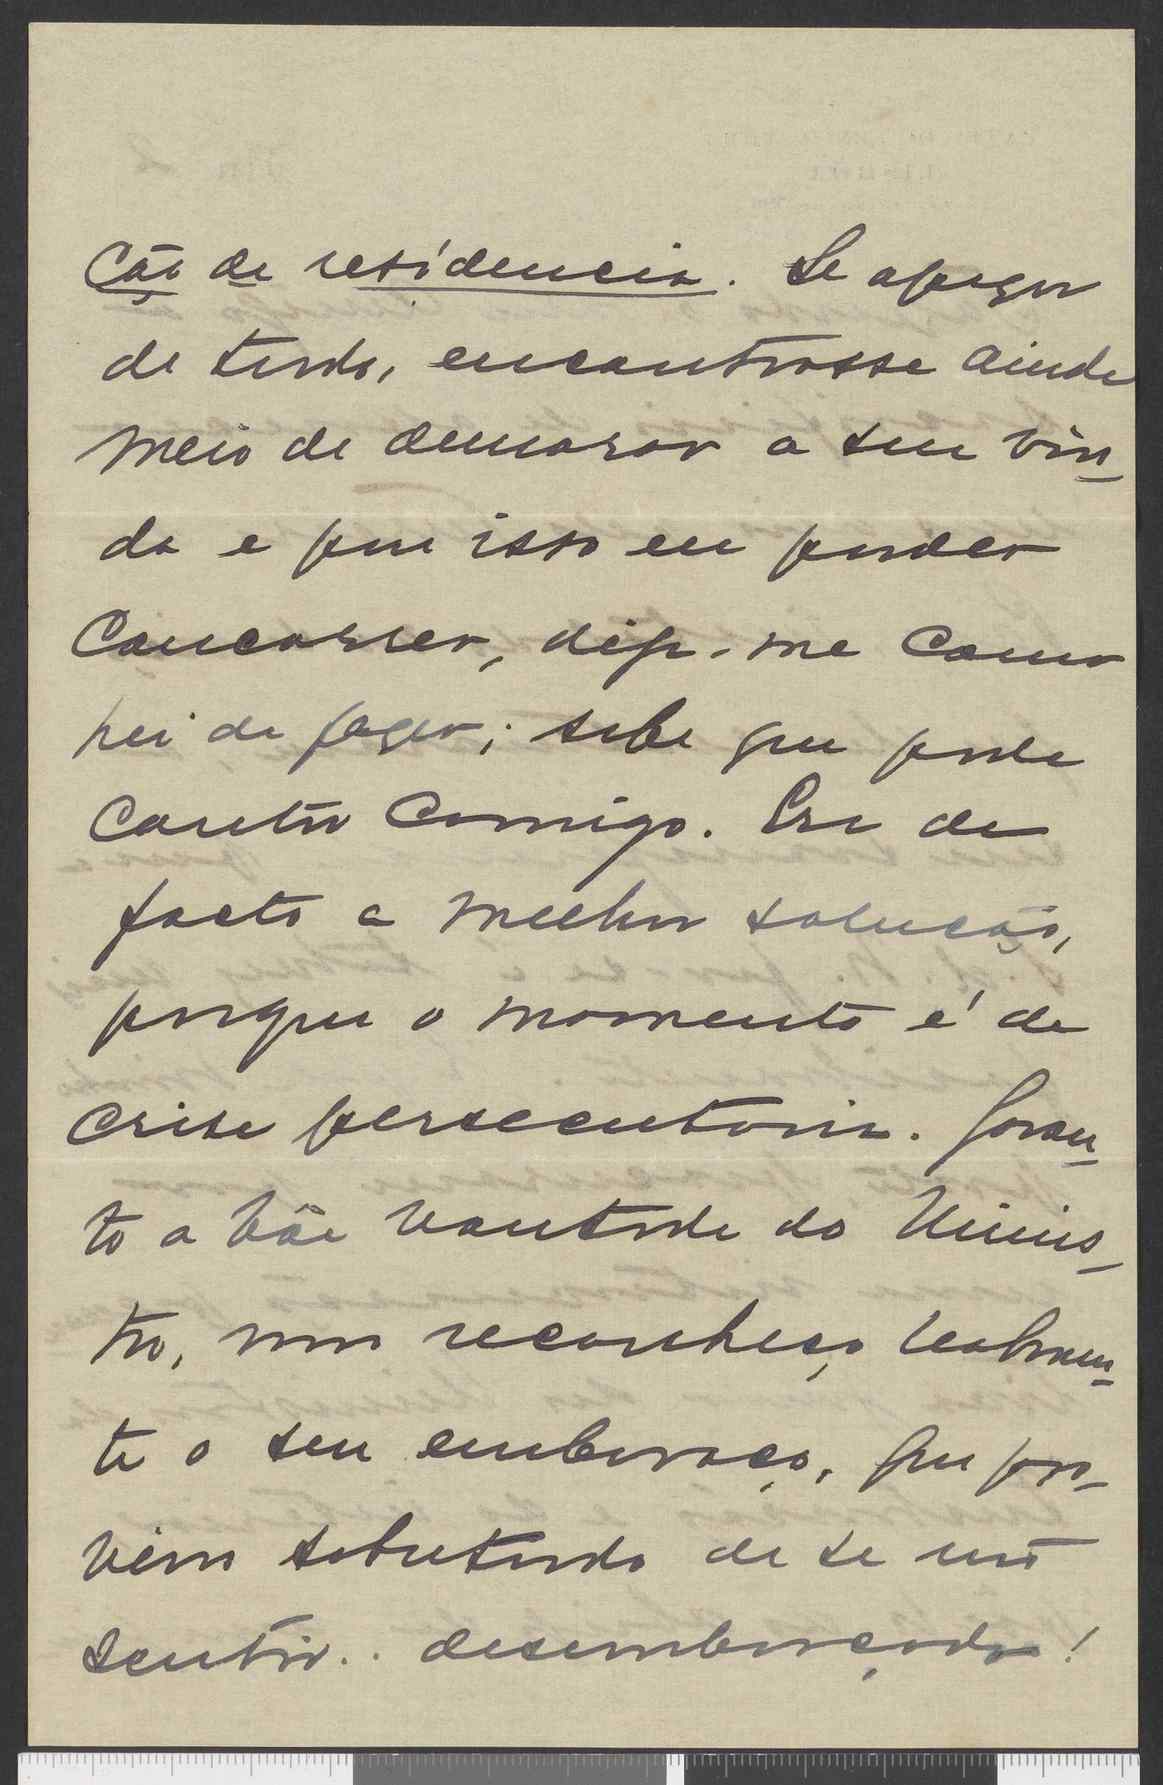 ção de residencia. Se apezar
de tudo, encontrasse ainda
meio de demorar a sua vin-
da e para isso eu poder
concorrer, diga-me como
hei de fazer; sabe que pode
contar comigo. Era de
facto a melhor solução,
porque o momento é de
crise persecutoria. Garan-
to a bôa vontade do Minis-
tro, mas reconheço lealmen-
te o seu embaraço, que pro-
vém sobretudo de se não
sentir.. desembaraçado!